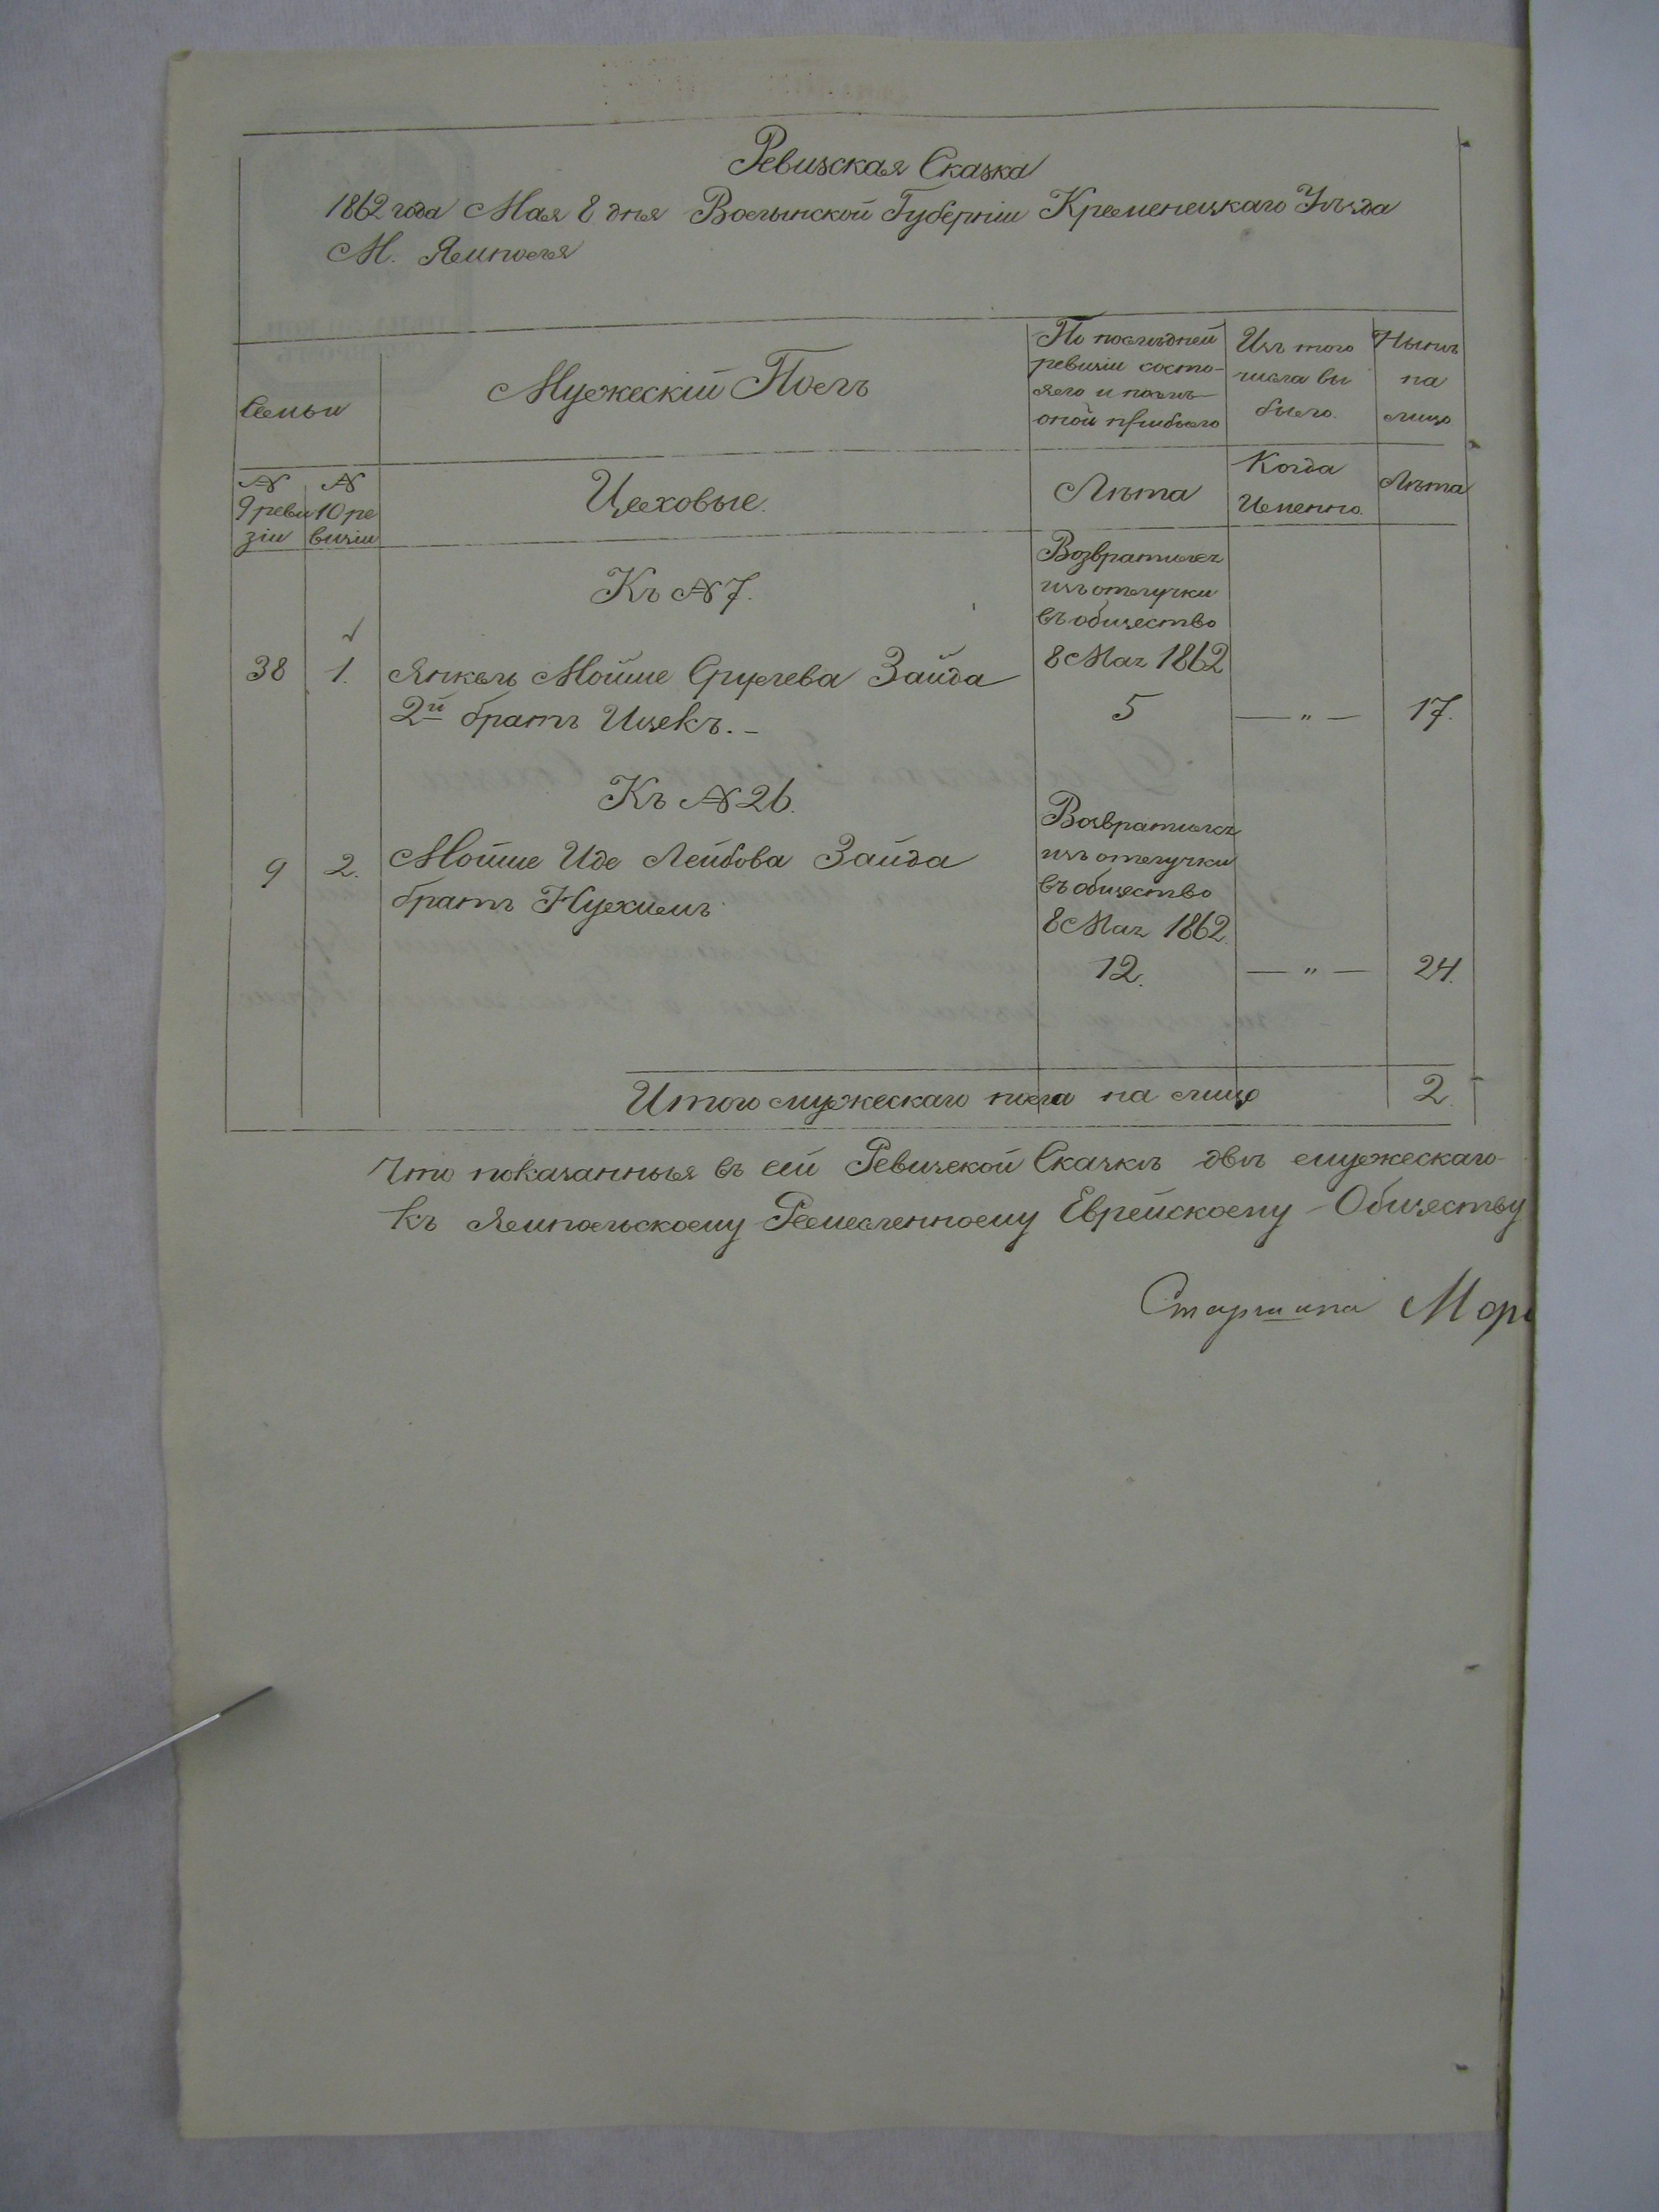 Ревизская Сказка
1862 года Мая 8 дня Волынской Губерніи Кременецкаго Уѣзда
М. Ямполя
Семьи
Мужескій Полъ
По послѣдней
ревизіи состо-
яло и послѣ
оной прибыло
Изъ того
числа вы
было.
Нынѣ
на
лицо
№
9 реви
зіи
№
10 ре
визіи
Цеховые.
Лѣта
Когда
Именно.
Лѣта
Къ № 7.
Возвратился
изъ отлучки
въ общество
8 Мая 1862
38 1. Янкель Мойше Срулева Зайда
2й братъ Ицекъ. –
5 — " — 17.
Къ № 26.
Возвратился
изъ отлучки
въ общество
8 Мая 1862.
9 2. Мойше Иде Лейбова Зайда
братъ Нухимъ
12. — " — 24.
Итого мужескаго пола на лицо 2.
Что показанныя въ сей Ревизской Сказкѣ двѣ мужескаго
къ Ямпольскому Ремесленному Еврейскому Обществу
Старшина